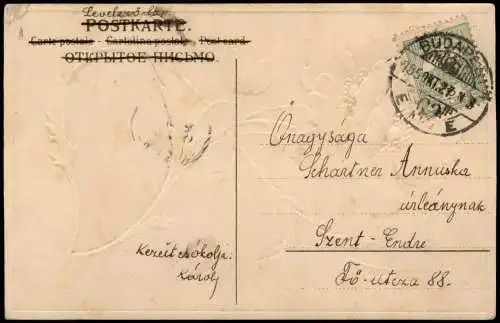 Levelező-lap
POSTKARTE.
Carte postale - Cartolina postale - Post card
ОТКРЫТОЕ ПИСЬМО
BUDAPEST
Őnagysága
Schartner Annuska
úrleánynak
Szent-Endre
Fő-utcza 88.
Kezeit csókolja:
Károly